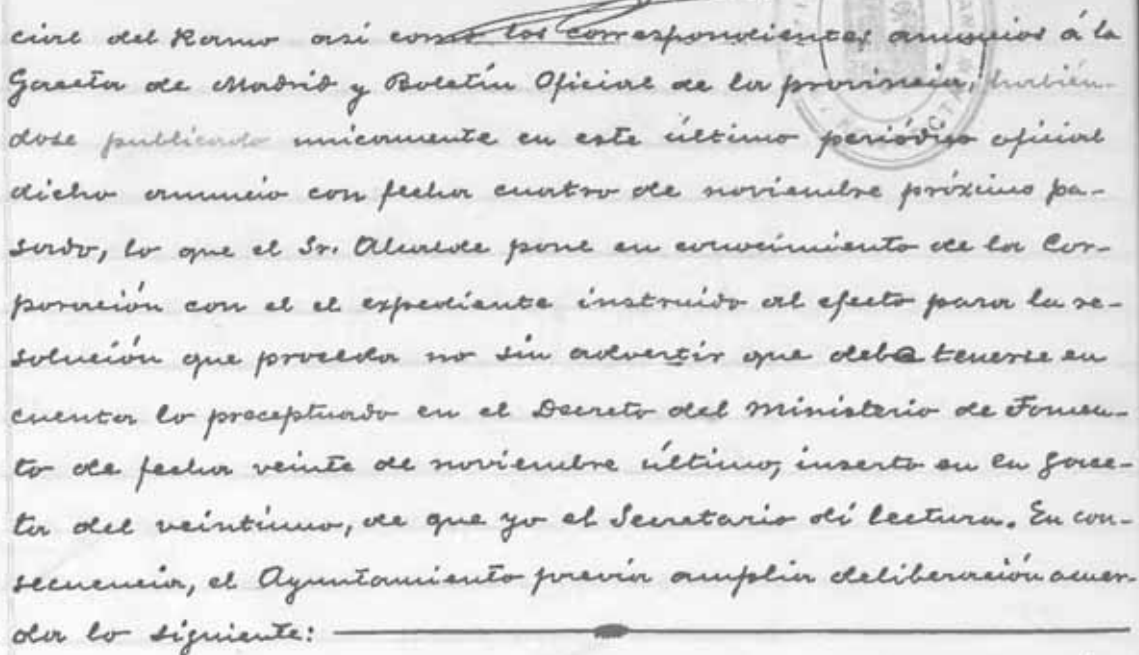 cial del Ramo asi como los correspondientes anuncios á la
Gaceta de Madrid y Boletín Oficial de la provincia, habién-
dose publicado unicamente en este último periódico oficial
dicho anuncio con fecha cuatro de noviembre próximo pa-
sado, lo que el Sr. Alcalde pone en conocimiento de la Cor-
poración con el el expediente instruido al efecto para la re-
solución que proceda no sin advertir que debe tenerse en
cuenta lo preceptuado en el Decreto del Ministerio de Fomen-
to de fecha veinte de noviembre último, inserto en la Gace-
ta del veintiuno, de que yo el Secretario dí lectura. En con-
secuencia, el Ayuntamiento previa amplia deliberación acuer-
da lo siguiente: